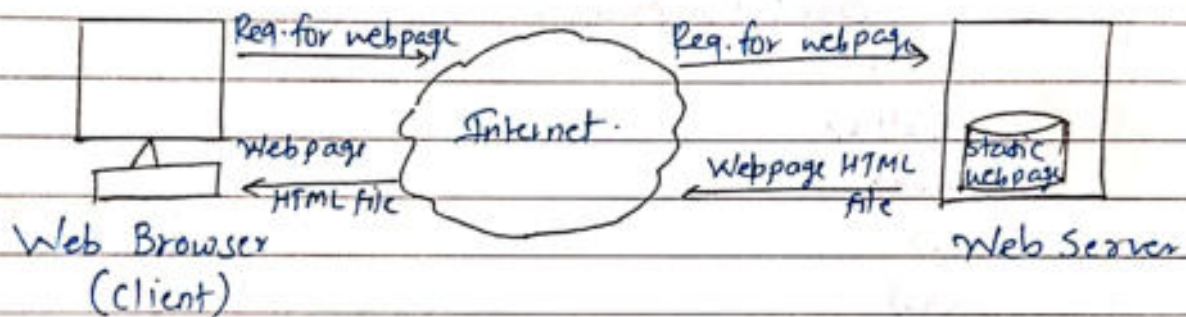 Req. for webpage
Req. for webpage
Internet.
Webpage
HTML file
Webpage HTML
file
static
webpage
Web Browser
(Client)
Web Server